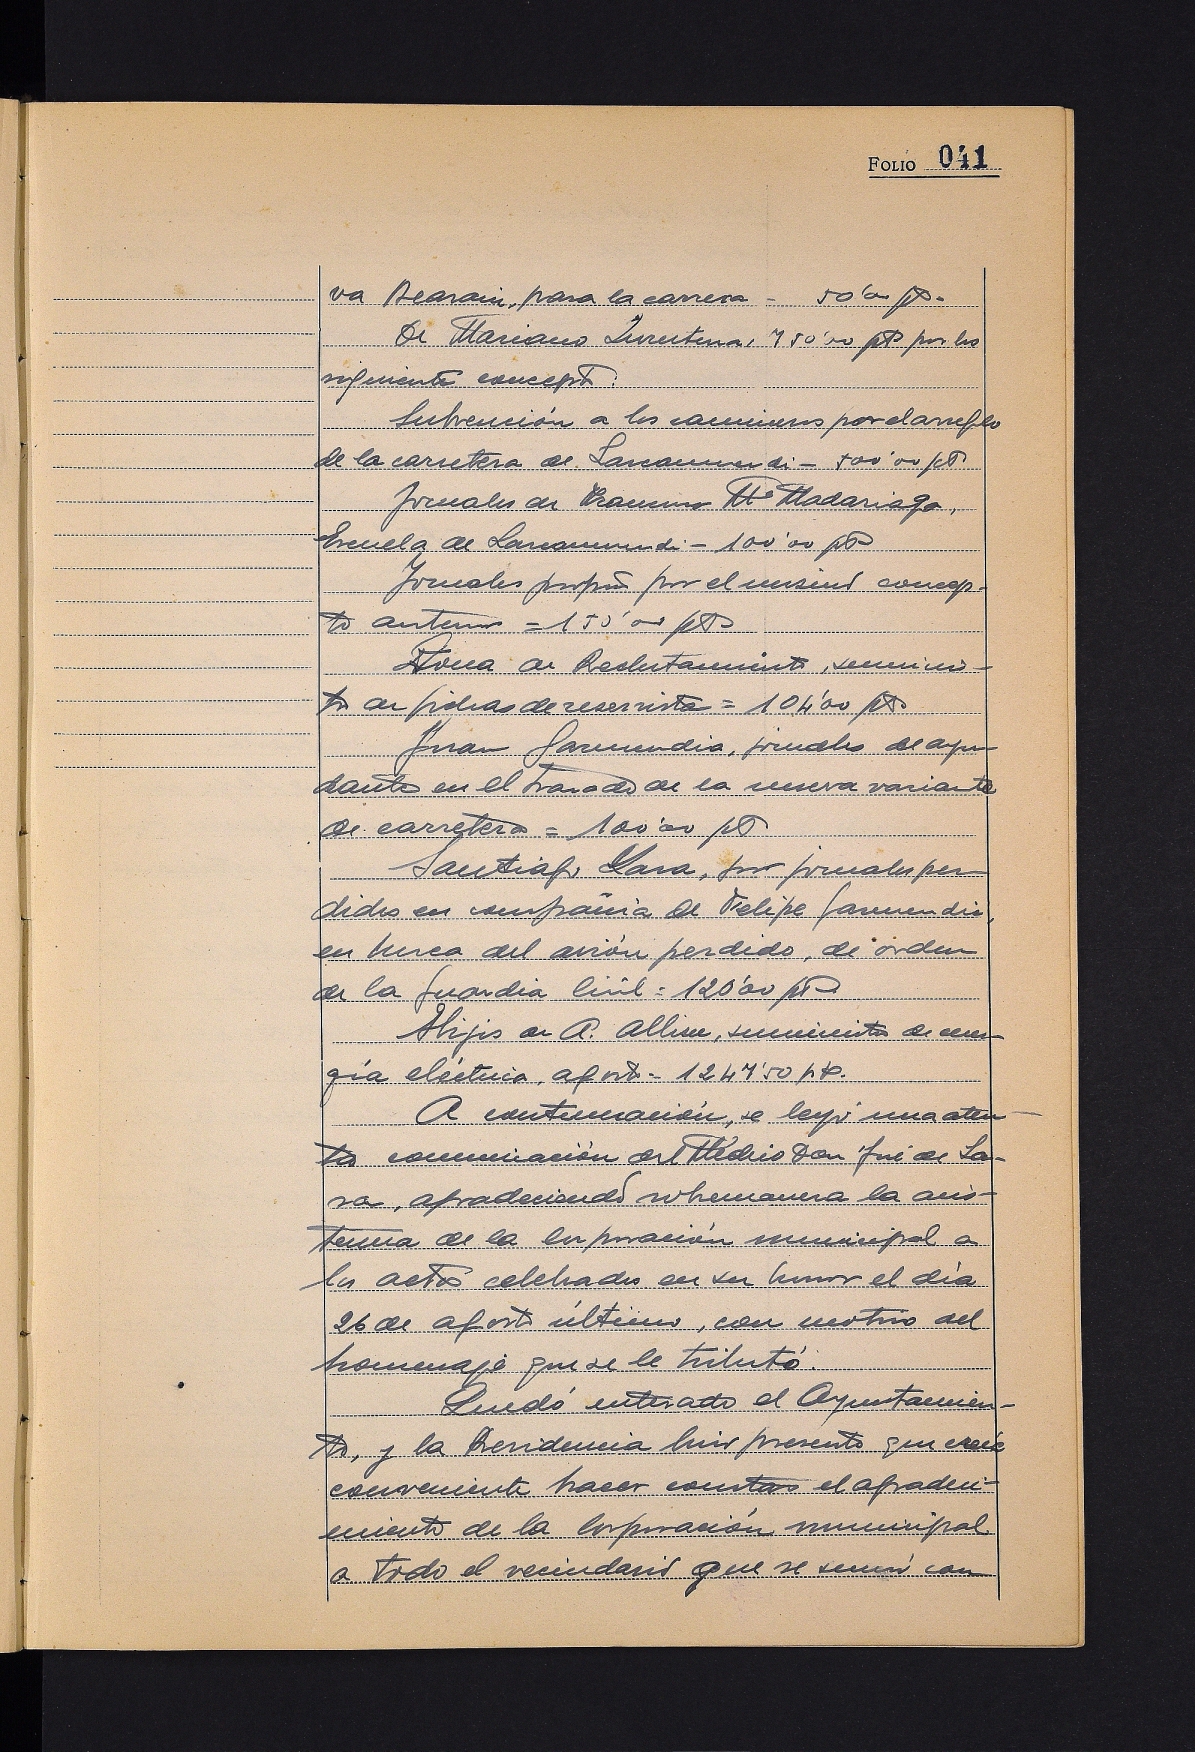 FOLIO 041
va Beasain, para la carrera - 50'00 pts.
De Mariano Zurutuza, 750'00 pts por los
siguientes conceptos:
Subvención a los camineros por el arreglo
de la carretera de Lazcanomendi - 500'00 pts
Jornales de Mª Madariaga,
Escuela de Lazcanomendi - 100'00 pts
Jornales propios por el mismo concep-
to anterior = 150'00 pts
Zona de Reclutamiento, suminis-
tro de fichas de reservista = 104'00 pts
Juan Garmendia, jornales de ayu-
dante en el trazado de la nueva variante
de carretera = 100'00 pts
Santiago Lasa, por jornales per-
didos en compañía de Felipe Garmendia,
en busca del avión perdido, de orden
de la Guardia Civil = 120'00 pts
Hijos de A. suministro de ener-
gía eléctrica, agosto - 1247'50 pts.
A continuación, se leyó una aten-
ta comunicación del Médico Don José de La-
sa, agradeciendo sobremanera la asis-
tencia de la Corporación municipal a
los actos celebrados en su honor el día
26 de agosto último, con motivo del
homenaje que se le tributó.
Quedó enterado el Ayuntamien-
to, y la Presidencia hizo presente que creía
conveniente hacer constar el agradeci-
miento de la Corporación municipal
a todo el vecindario que se sumó con